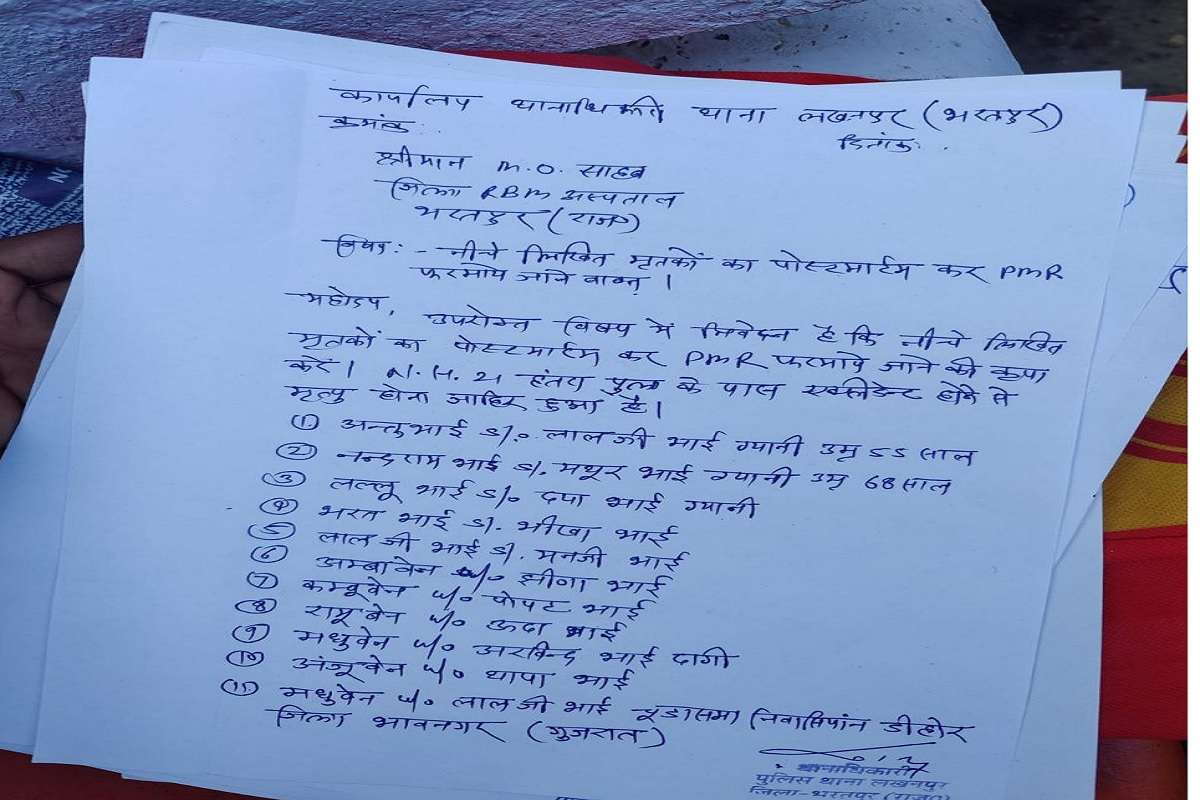 कार्यालय थानाधिकारी थाना लखनपुर (भरतपुर)
क्रमांक : दिनांक :
श्रीमान M.O. साहब
जिला RBM अस्पताल
भरतपुर (राज०)
विषय : - नीचे लिखित मृतकों का पोस्टमार्टम कर PMR
फरमाये जाने बाबत ।
महोदय,
उपरोक्त विषय में निवेदन है कि नीचे लिखित
मृतकों का पोस्टमार्टम कर PMR फरमाये जाने की कृपा
करें। N.H. 21 हंतरा पुल के पास एक्सीडेन्ट होने से
मृत्यु होना जाहिर हुआ है।
① अन्तुभाई S/o लालजी भाई ग्यानी उम्र 55 साल
② नन्दराम भाई S/o मथूर भाई ग्यानी उम्र 68 साल
③ लल्लू भाई S/o दया भाई ग्यानी
④ भरत भाई S/o भीखा भाई
⑤ लाल जी भाई S/o मनजी भाई
⑥ अम्बाबेन W/o झीणा भाई
⑦ कम्बूबेन W/o पोपट भाई
⑧ रामूबेन W/o ऊदा भाई
⑨ मधुबेन W/o अरविन्द भाई दागी
⑩ अंजूबेन W/o थापा भाई
⑪ मधुबेन W/o लालजी भाई चूडासमा निवासियांन डीहोर
जिला भावनगर (गुजरात)
थानाधिकारी
पुलिस थाना लखनपुर
जिला-भरतपुर (राज०)